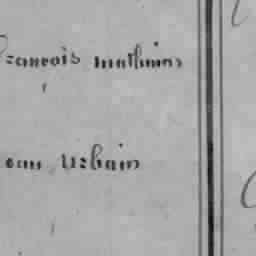 François mathurins
ean Urbain